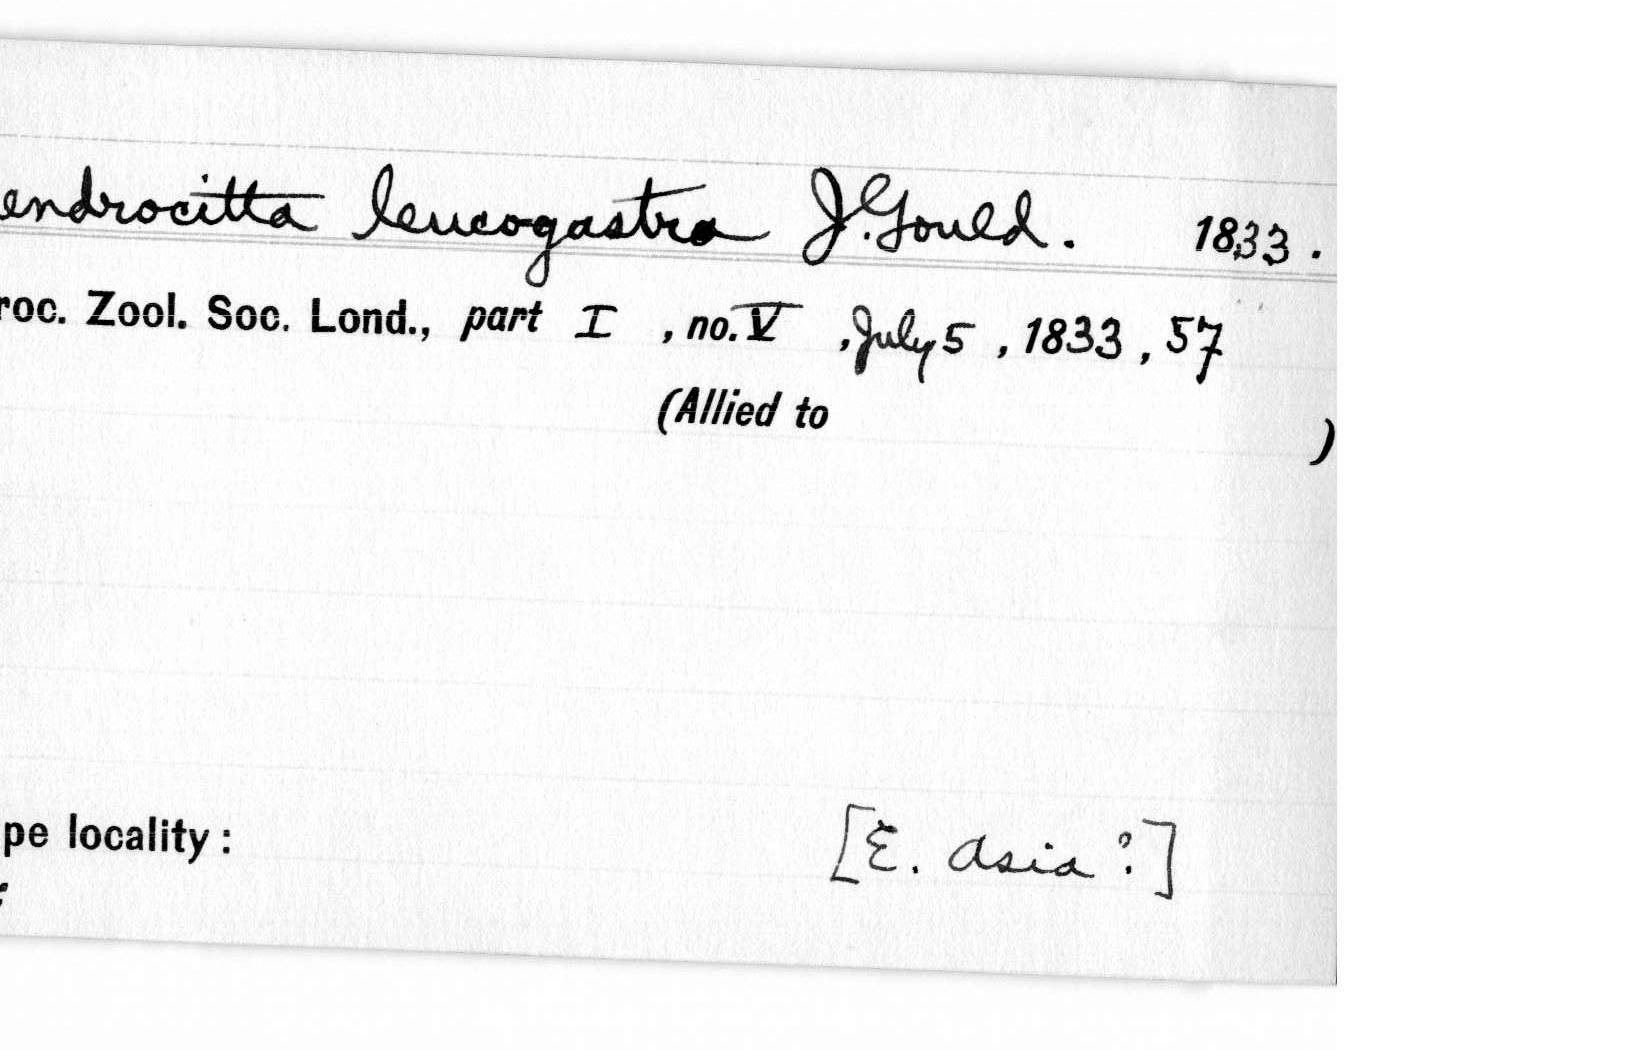 endrocitta leucogastra J. Gould. 1833.
roc. Zool. Soc. Lond., part I , no. V , July 5 , 1833 , 57
(Allied to )
pe locality: [E. Asia ?]